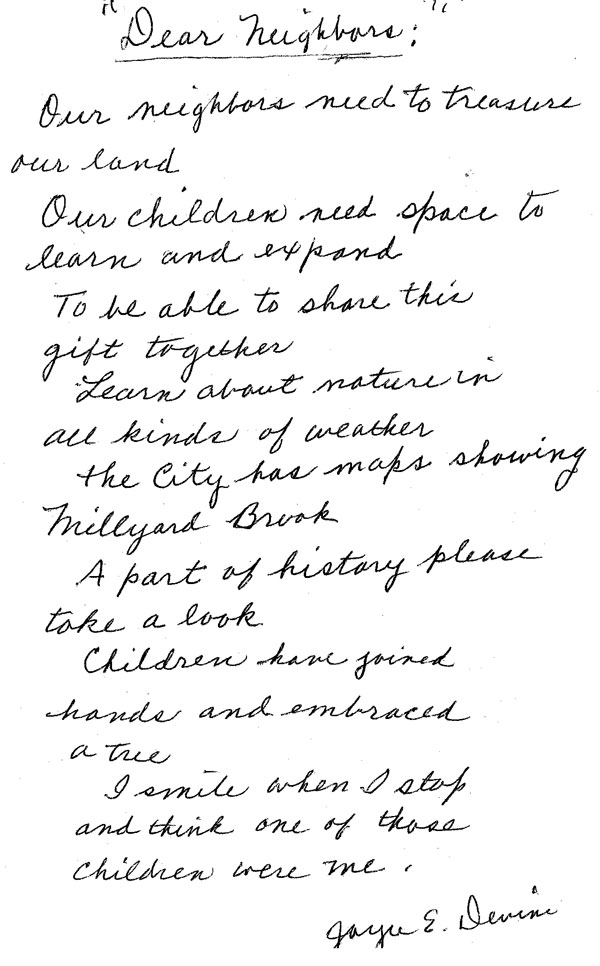 "Dear Neighbors:"
Our neighbors need to treasure
our land
Our children need space to
learn and expand
To be able to share this
gift together
Learn about nature in
all kinds of weather
the City has maps showing
Millyard Brook
A part of history please
take a look
Children have joined
hands and embraced
a tree
I smile when I stop
and think one of those
Children were me.
Joyce E. Devine